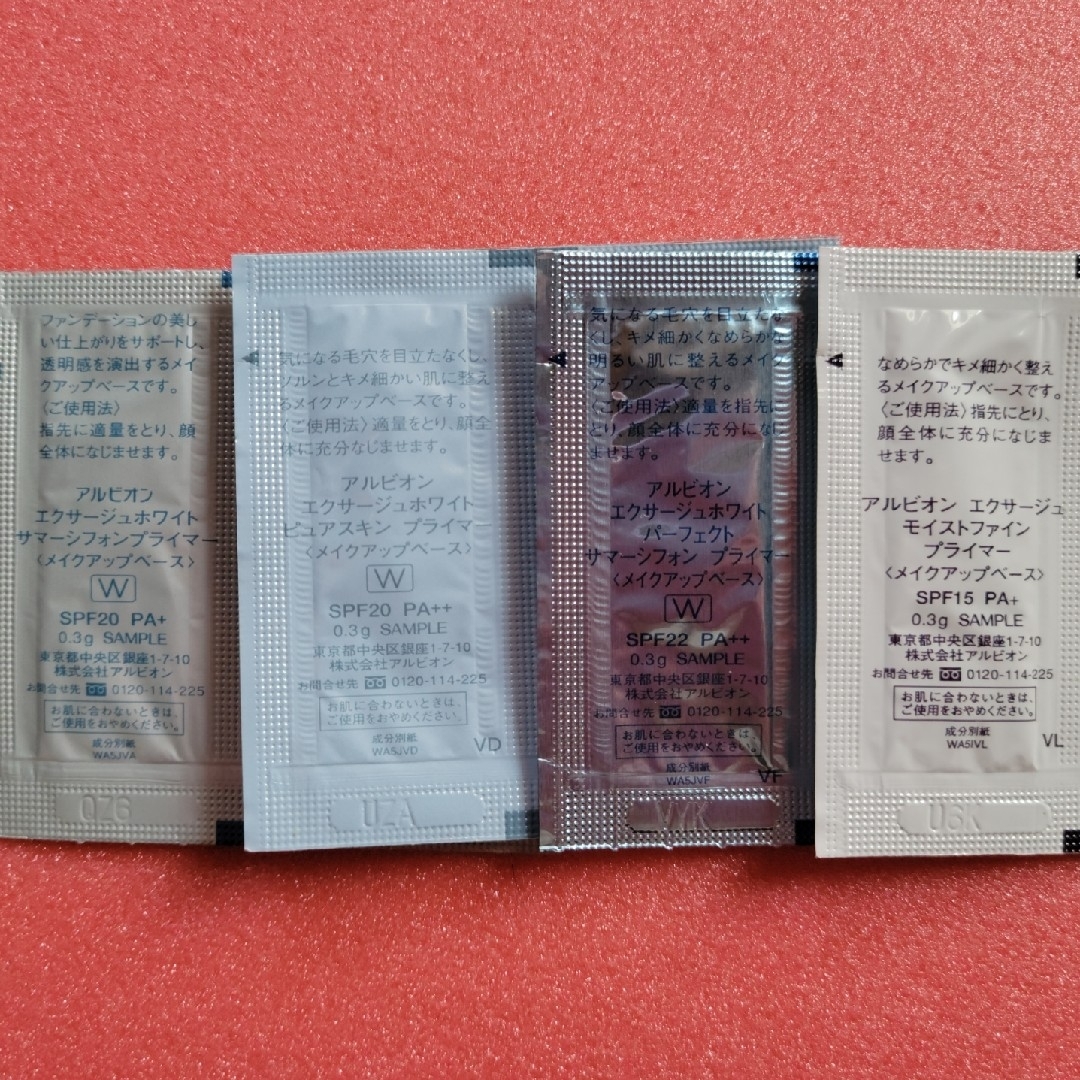 ファンデーションの美し
い仕上がりをサポートし、
透明感を演出するメイ
クアップベースです。
〈ご使用法〉
指先に適量をとり、顔
全体になじませます。
アルビオン
エクサージュホワイト
サマーシフォンプライマー
〈メイクアップベース〉
W
SPF20 PA+
0.3g SAMPLE
東京都中央区銀座1-7-10
株式会社アルビオン
お問合せ先 0120-114-225
お肌に合わないときは、
ご使用をおやめください。
成分別紙
WA5JVA
QZG
気になる毛穴を目立たなくし、
ツルンとキメ細かい肌に整え
るメイクアップベースです。
〈ご使用法〉適量をとり、顔全
体に充分なじませます。
アルビオン
エクサージュホワイト
ピュアスキン プライマー
〈メイクアップベース〉
W
SPF20 PA++
0.3g SAMPLE
東京都中央区銀座1-7-10
株式会社アルビオン
お問合せ先 0120-114-225
お肌に合わないときは、
ご使用をおやめください。
成分別紙
WA5JVD
VD
UZA
気になる毛穴を目立たな
くし、キメ細かくなめらかな
明るい肌に整えるメイク
アップベースです。
〈ご使用法〉適量を指先に
とり、顔全体に充分になじ
ませます。
アルビオン
エクサージュホワイト
パーフェクト
サマーシフォン プライマー
〈メイクアップベース〉
W
SPF22 PA++
0.3g SAMPLE
東京都中央区銀座1-7-10
株式会社アルビオン
お問合せ先 0120-114-225
お肌に合わないときは、
ご使用をおやめください。
成分別紙
WA5JVF
VF
なめらかでキメ細かく整え
るメイクアップベースです。
〈ご使用法〉指先にとり、
顔全体に充分になじま
せます。
アルビオン エクサージュ
モイストファイン
プライマー
〈メイクアップベース〉
SPF15 PA+
0.3g SAMPLE
東京都中央区銀座1-7-10
株式会社アルビオン
お問合せ先 0120-114-225
お肌に合わないときは、
ご使用をおやめください。
成分別紙
WA5IVL
VL